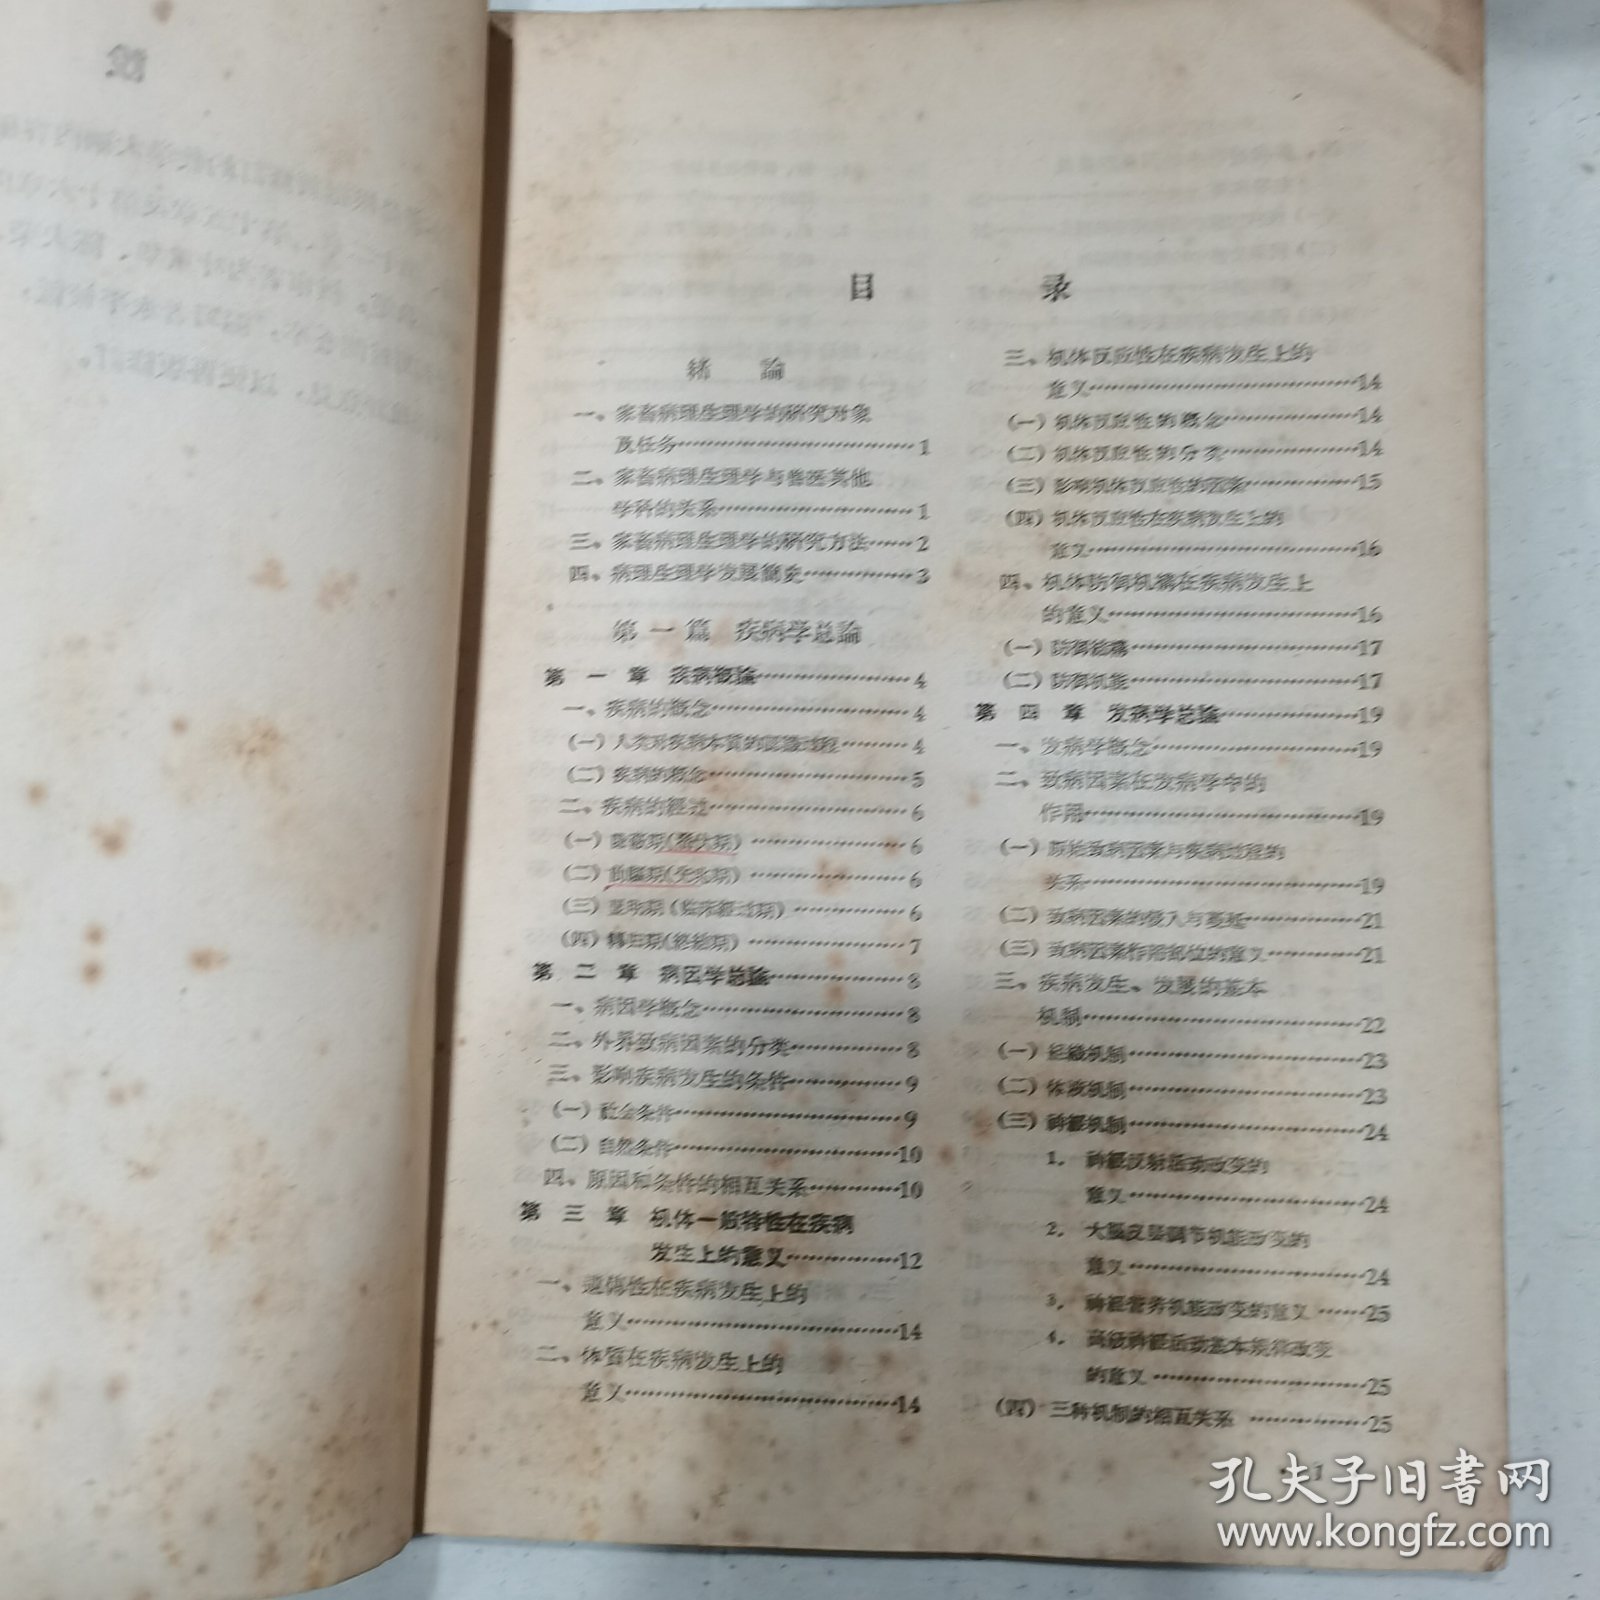 目录
绪論
一、家畜病理生理学的研究对象
及任务……1
二、家畜病理生理学与兽医其他
学科的关系……1
三、家畜病理生理学的研究方法……2
四、病理生理学发展簡史……3
第一篇 疾病学总論
第一章 疾病概論……4
一、疾病的概念……4
(一)人类对疾病本質的認識过程……4
(二)疾病的概念……5
二、疾病的經过……6
(一)隐蔽期(潛伏期)……6
(二)前驅期(先兆期)……6
(三)显明期(临床經过期)……6
(四)轉归期(終結期)……7
第二章 病因学总論……8
一、病因学概念……8
二、外界致病因素的分类……8
三、影响疾病发生的条件……9
(一)社会条件……9
(二)自然条件……10
四、原因和条件的相互关系……10
第三章 机体一般特性在疾病
发生上的意义……12
一、遺傳性在疾病发生上的
意义……14
二、体質在疾病发生上的
意义……14
三、机体反应性在疾病发生上的
意义……14
(一)机体反应性的概念……14
(二)机体反应性的分类……14
(三)影响机体反应性的因素……15
(四)机体反应性在疾病发生上的
意义……16
四、机体防御机構在疾病发生上
的意义……16
(一)防御結構……17
(二)防御机能……17
第四章 发病学总論……19
一、发病学概念……19
二、致病因素在发病学中的
作用……19
(一)原始致病因素与疾病过程的
关系……19
(二)致病因素的侵入与蔓延……21
(三)致病因素作用部位的意义……21
三、疾病发生、发展的基本
机制……22
(一)組織机制……23
(二)体液机制……23
(三)神經机制……24
1. 神經反射活动改变的
意义……24
2. 大腦皮层調节机能改变的
意义……24
3. 神經营养机能改变的意义……25
4. 高級神經活动基本規律改变
的意义……25
(四)三种机制的相互关系……25
1
孔夫子旧書网
www.kongfz.com